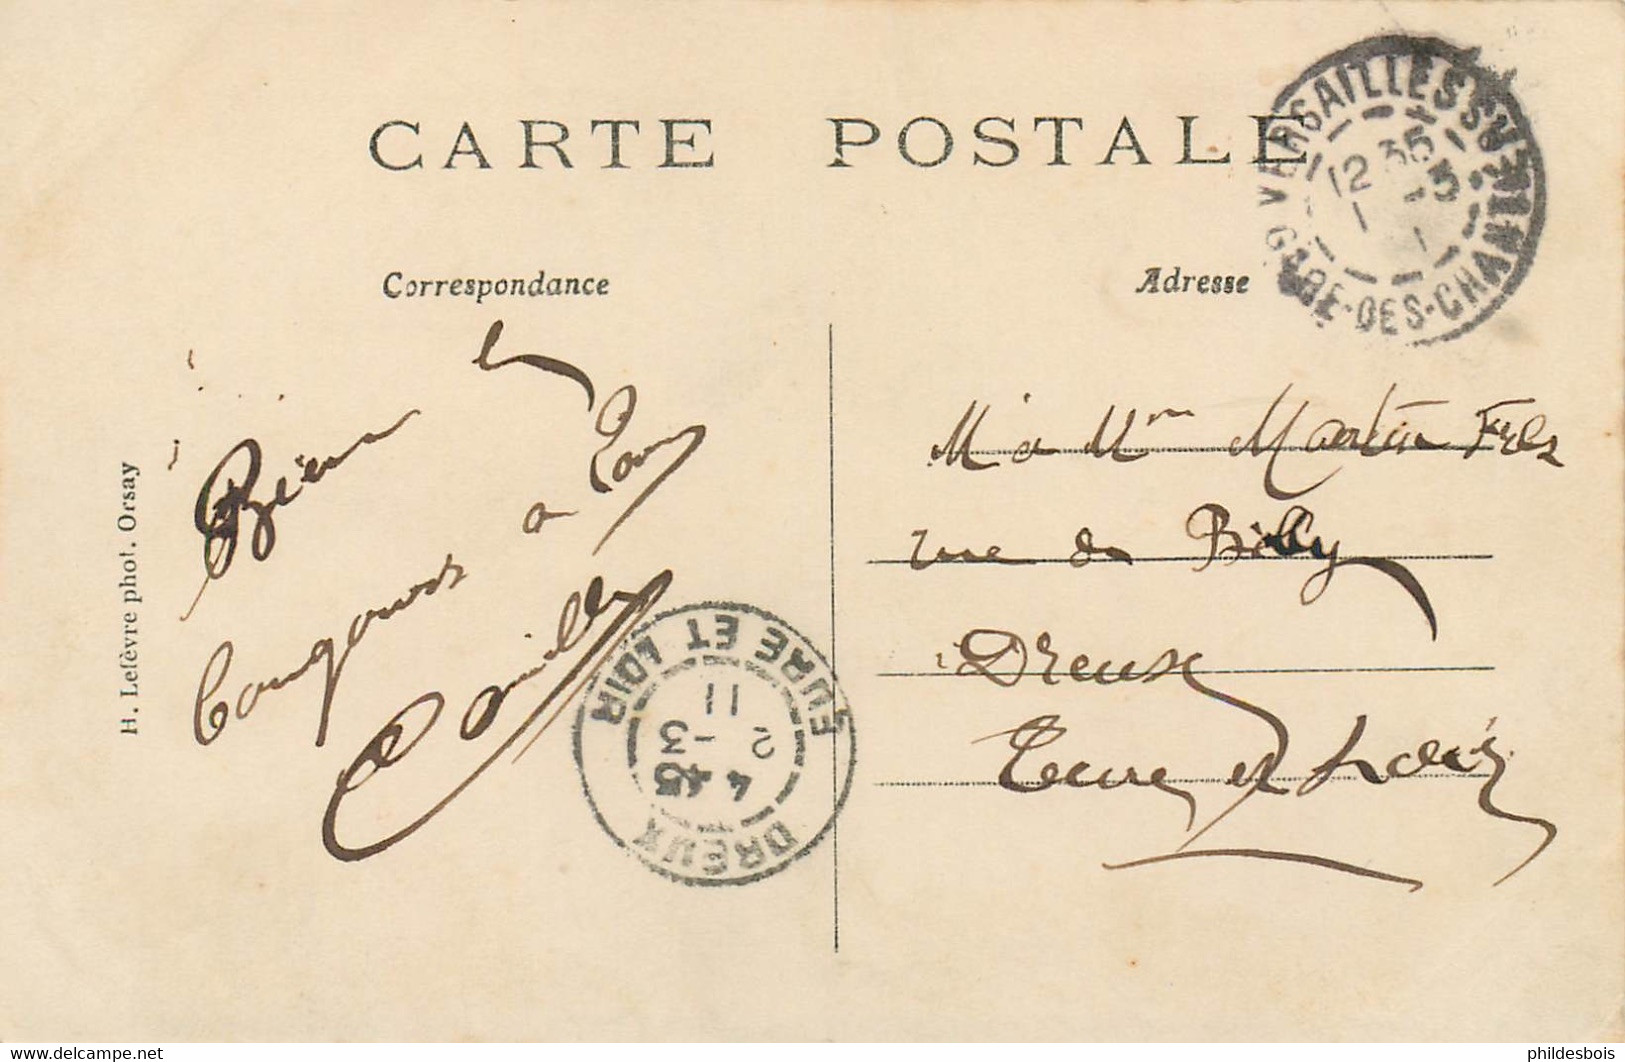 CARTE POSTALE
Correspondance
Adresse
VERSAILLES GARE-DES-CHANTIERS
12 35
1 - 3
11
Bien
le
bonjour
a
tous
Camille
M & Mme Martin Fils
rue de Billy
Dreux
Eure et Loir
DREUX
4 45
2 - 3
11
EURE ET LOIR
H. Lefèvre phot. Orsay
phildesbois